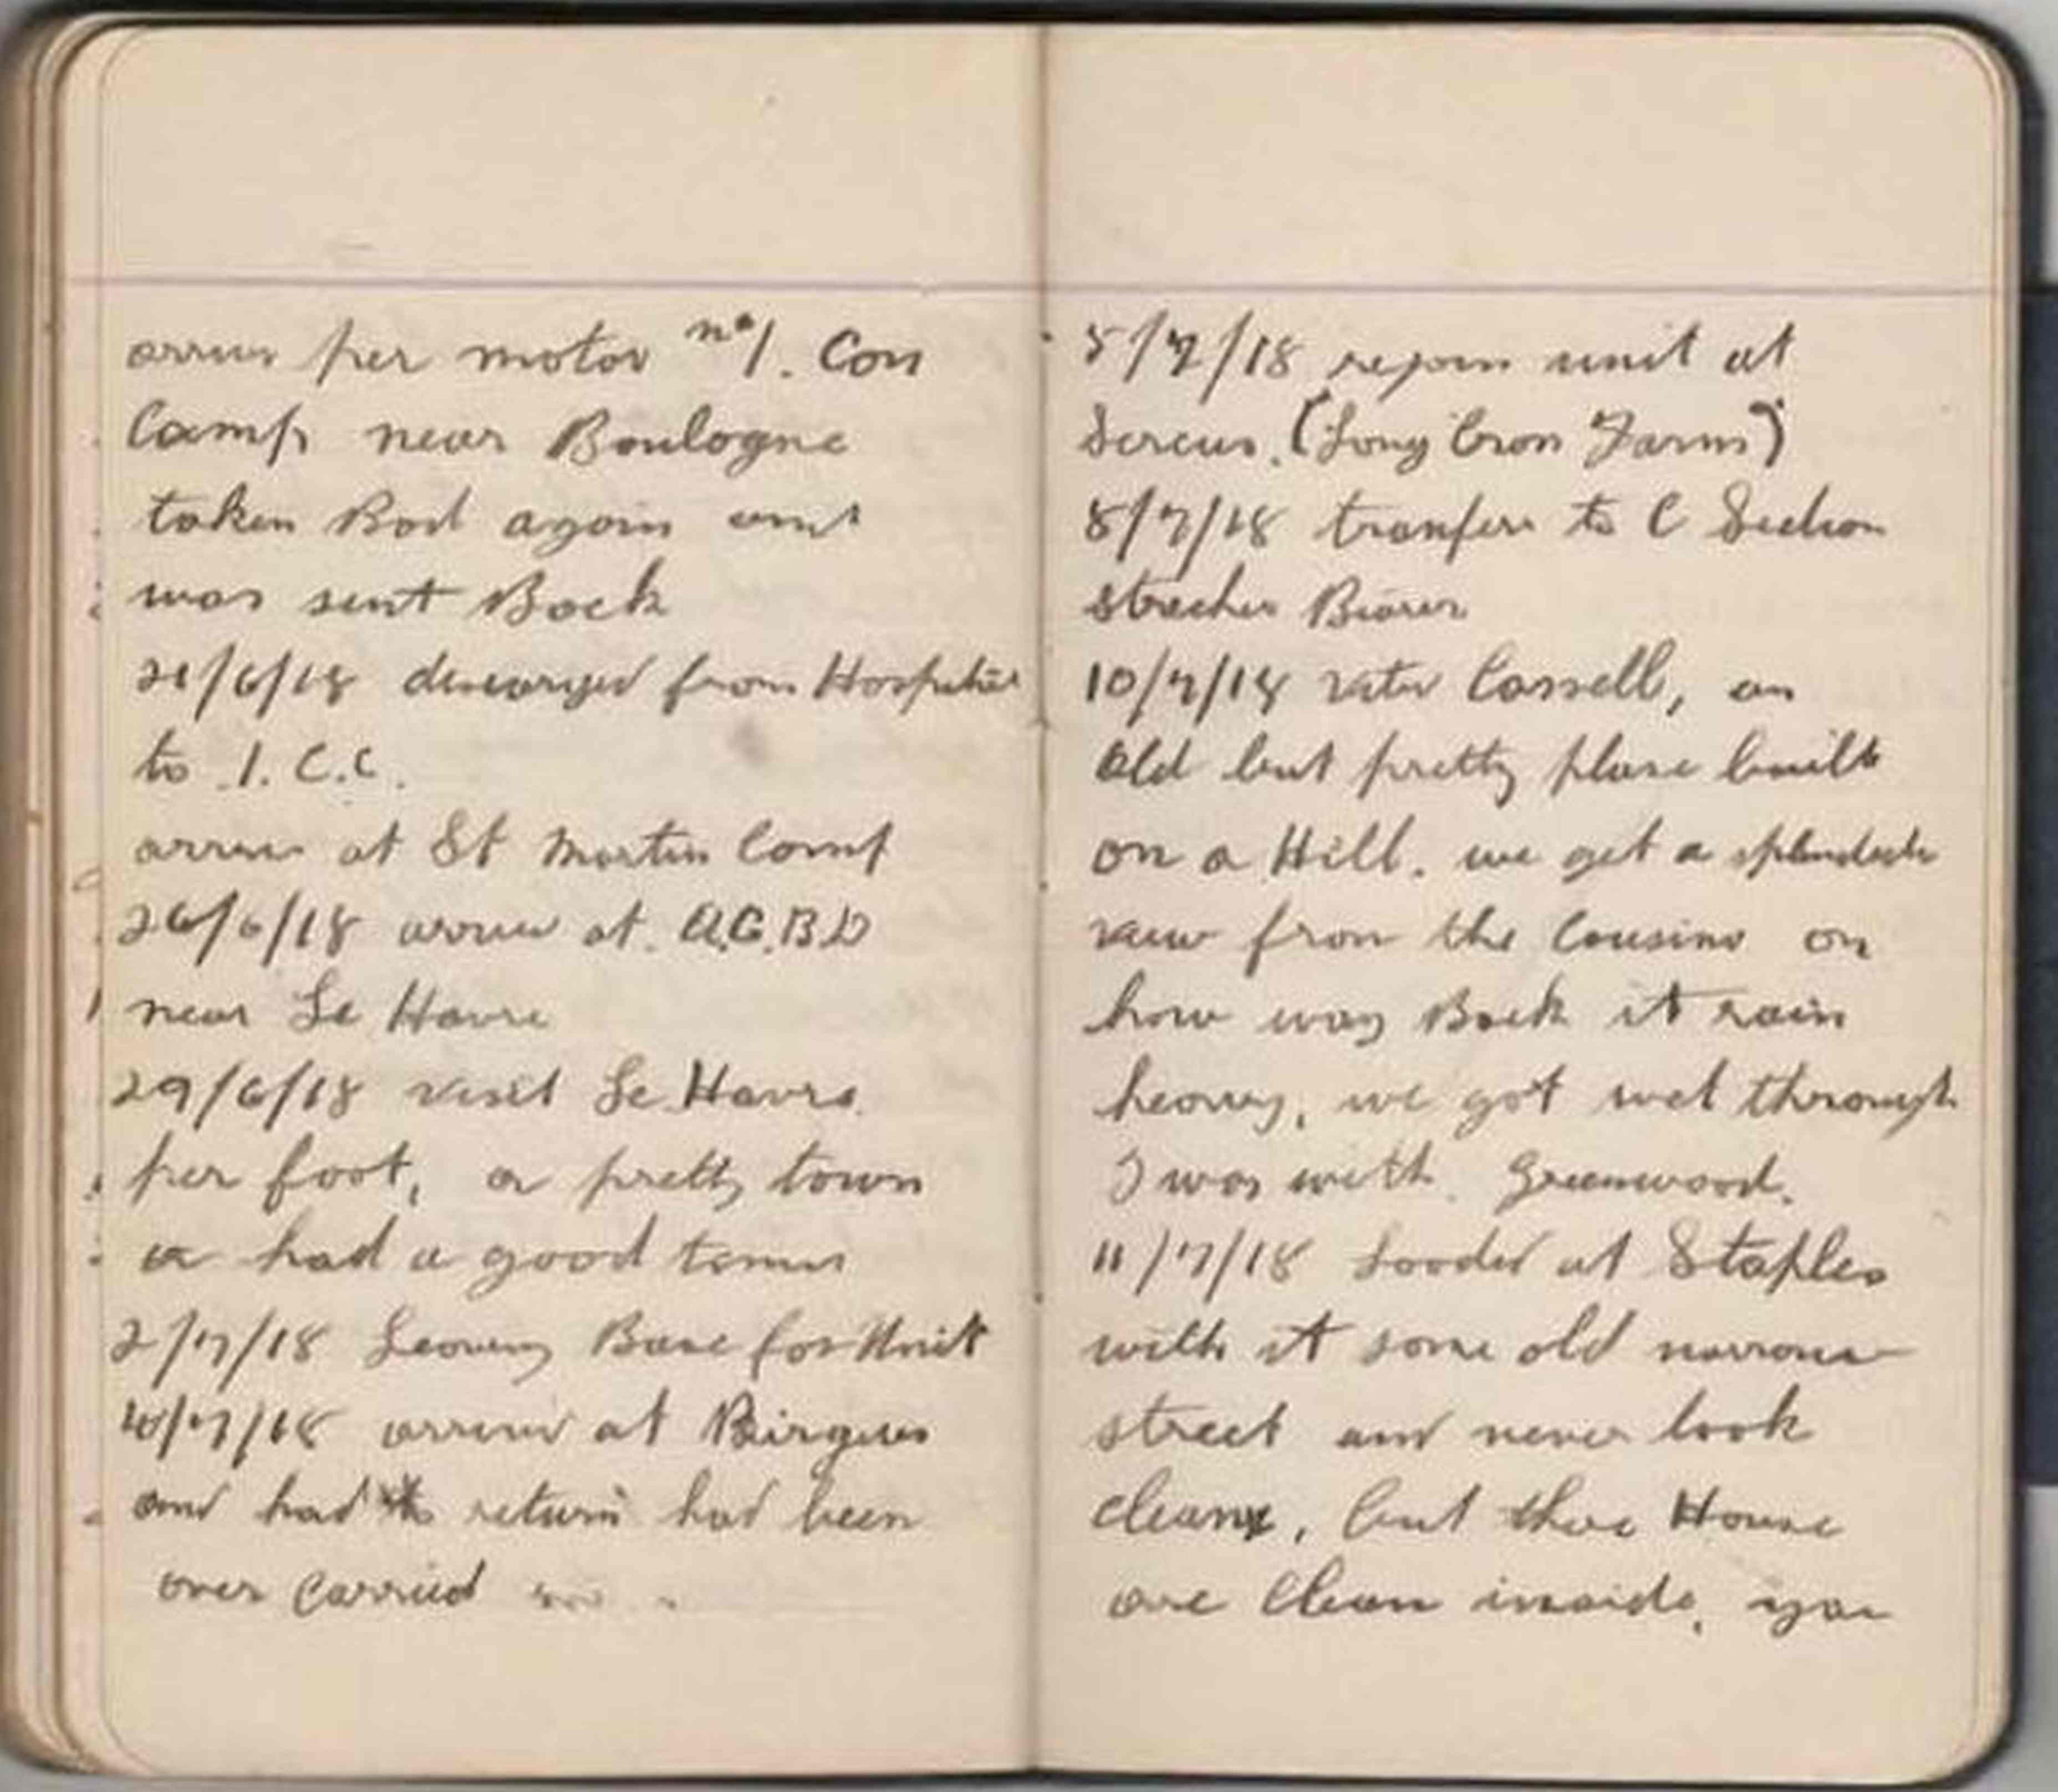 arrive per motor No 1. Con
Camp near Boulogne
taken Bad again and
was sent Back
21/6/18 discarged from Hospital
to 1. C.C.
arrive at St Martin Camp
26/6/18 arrive at A.G.B.D
near Le Havre
29/6/18 visit Le Havre
per foot, a pretty town
a had a good time
2/7/18 Leaving Base for Unit
4/7/18 arrive at Birgues
and had to return had been
over carried
5/7/18 rejoin unit at
Sercus. (Long Cron Farm)
8/7/18 tranfer to C Section
strecher Bearer
10/7/18 Cassell, an
old but pretty place built
on a Hill. we get a splendid
view from the Cousino on
how way Back it rain
heavy, we got wet through
I was with Greenwood.
11/7/18 at Staples
with it some old narrow
street and never look
clean, but there House
are clean inside, you